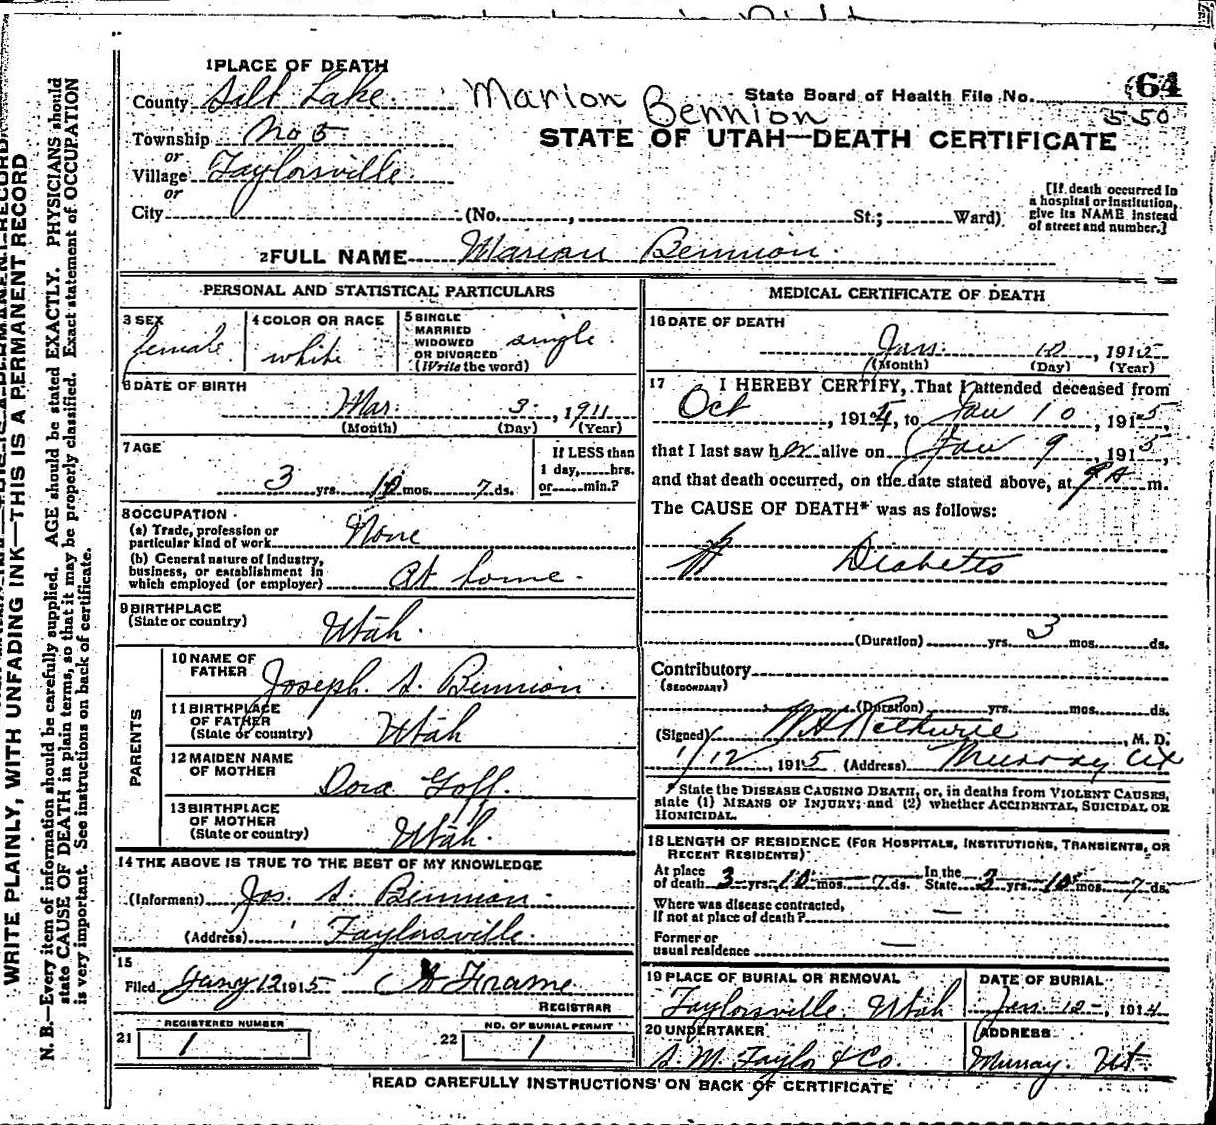 1 PLACE OF DEATH
County Salt Lake
Marion Bennion
State Board of Health File No. 64
550
Township No 5
or
Village Taylorsville
or
City (No. , St.; Ward)
STATE OF UTAH—DEATH CERTIFICATE
[If death occurred in
a hospital or institution,
give its NAME instead
of street and number.]
2 FULL NAME Marian Bennion
PERSONAL AND STATISTICAL PARTICULARS
3 SEX
female
4 COLOR OR RACE
white
5 SINGLE
MARRIED
WIDOWED
OR DIVORCED
(Write the word)
single
6 DATE OF BIRTH
Mar. 3, 1911
(Month) (Day) (Year)
7 AGE
3 yrs. 10 mos. 7 ds.
If LESS than
1 day, hrs.
or min.?
8 OCCUPATION
(a) Trade, profession or
particular kind of work None
(b) General nature of industry,
business, or establishment in
which employed (or employer) At home.
9 BIRTHPLACE
(State or country)
Utah.
PARENTS
10 NAME OF
FATHER
Joseph. S. Bennion.
11 BIRTHPLACE
OF FATHER
(State or country)
Utah
12 MAIDEN NAME
OF MOTHER
Dora Goff.
13 BIRTHPLACE
OF MOTHER
(State or country)
Utah.
14 THE ABOVE IS TRUE TO THE BEST OF MY KNOWLEDGE
(Informant) Jos. S. Bennion.
(Address) Taylorsville.
15
Filed Jany 12 1915 Frame
REGISTRAR
21 REGISTERED NUMBER
1
22 NO. OF BURIAL PERMIT
1
MEDICAL CERTIFICATE OF DEATH
16 DATE OF DEATH
Jan. 10, 1915
(Month) (Day) (Year)
17 I HEREBY CERTIFY, That I attended deceased from
Oct , 1914, to Jan 10, 1915,
that I last saw her alive on Jan 9, 1915,
and that death occurred, on the date stated above, at 9 A m.
The CAUSE OF DEATH* was as follows:
Diabetes
(Duration) yrs. 3 mos. ds.
Contributory
(SECONDARY)
(Duration) yrs. mos. ds.
(Signed) , M. D.
1/12, 1915 (Address) Murray Ut
* State the DISEASE CAUSING DEATH, or, in deaths from VIOLENT CAUSES,
state (1) MEANS OF INJURY; and (2) whether ACCIDENTAL, SUICIDAL OR
HOMICIDAL.
18 LENGTH OF RESIDENCE (FOR HOSPITALS, INSTITUTIONS, TRANSIENTS, OR
RECENT RESIDENTS)
At place
of death 3 yrs. 10 mos. 7 ds.
In the
State 3 yrs. 10 mos. 7 ds.
Where was disease contracted,
If not at place of death? —
Former or
usual residence —
19 PLACE OF BURIAL OR REMOVAL
Taylorsville, Utah
DATE OF BURIAL
Jan. 12, 1914
20 UNDERTAKER
S. M. Taylor & Co.
ADDRESS
Murray. Ut
READ CAREFULLY INSTRUCTIONS ON BACK OF CERTIFICATE
WRITE PLAINLY, WITH UNFADING INK—THIS IS A PERMANENT RECORD
N. B.—Every item of information should be carefully supplied. AGE should be stated EXACTLY. PHYSICIANS should
state CAUSE OF DEATH in plain terms, so that it may be properly classified. Exact statement of OCCUPATION
is very important. See instructions on back of certificate.